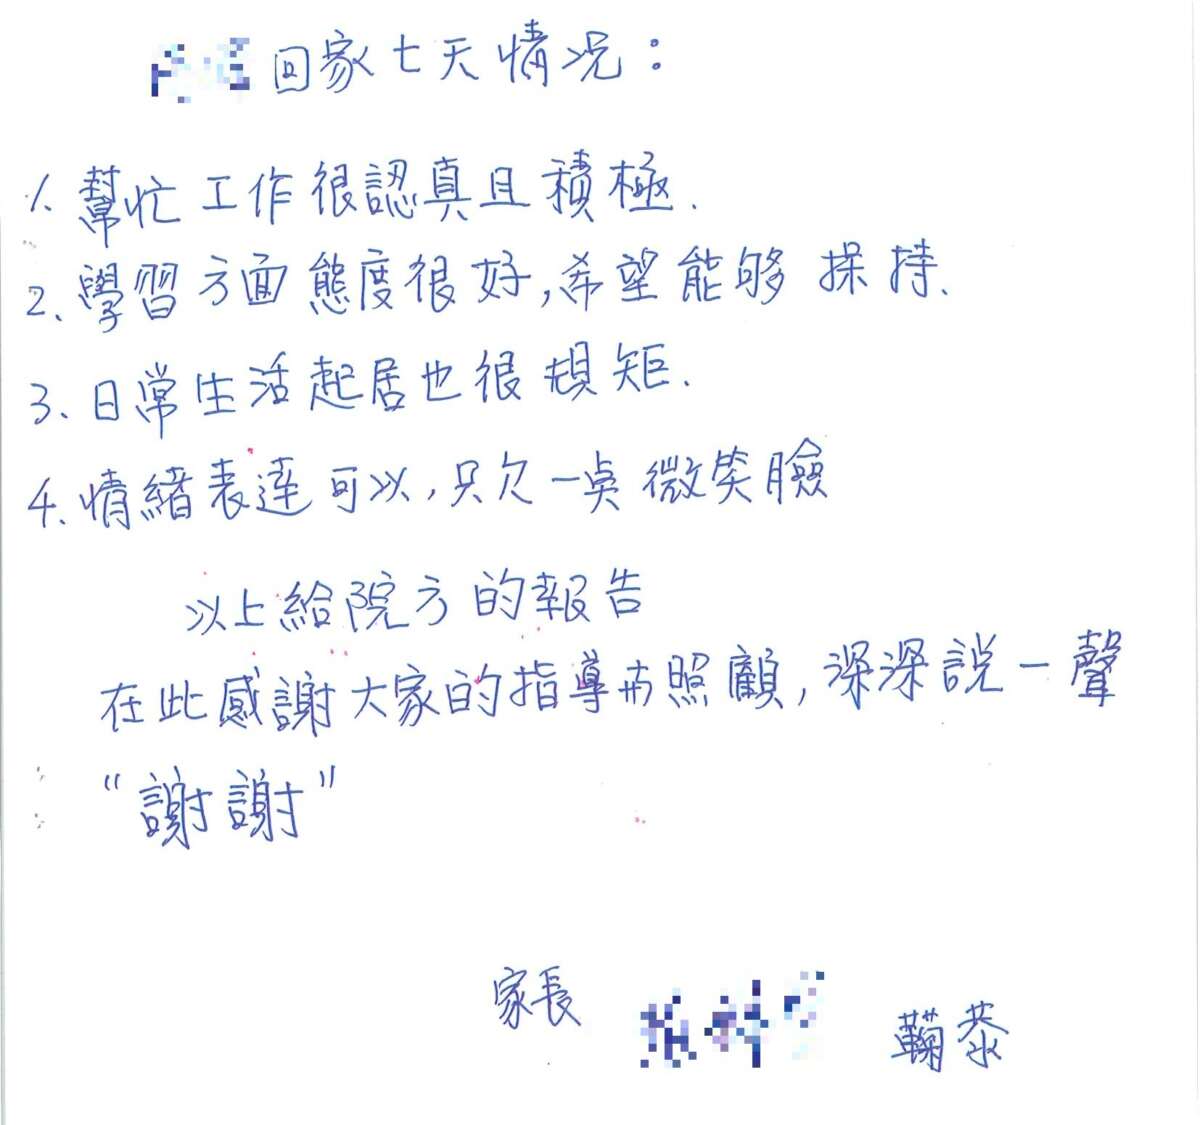 回家七天情況：
1. 幫忙工作很認真且積極.
2. 學習方面態度很好,希望能够保持.
3. 日常生活起居也很規矩.
4. 情緒表達可以,只欠一點微笑臉
以上給院方的報告
在此感謝大家的指導与照顧,深深說一聲
“謝謝”
家長 鞠恭